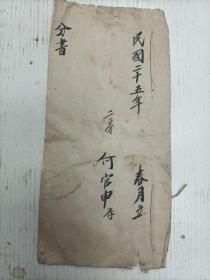 民國二十五年 春月立
二房 何官申存
分書